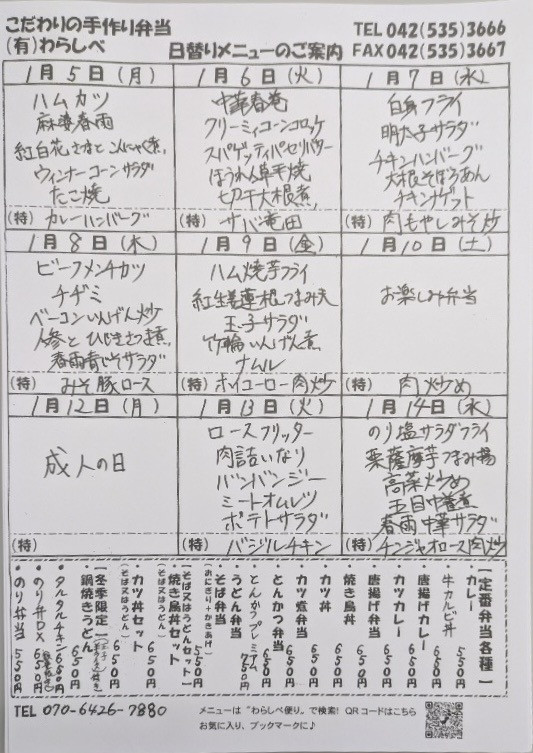 こだわりの手作り弁当
(有)わらしべ
日替りメニューのご案内
TEL 042(535)3666
FAX 042(535)3667
1月5日(月)
ハムカツ
麻婆春雨
紅白花さきとこんにゃく煮
ウィンナーコーンサラダ
たこ焼
(特) カレーハンバーグ
1月6日(火)
中華春巻
クリーミィコーンコロッケ
スパゲッティバセリバター
ほうれん草平焼
切干大根煮
(特) サバ竜田
1月7日(水)
白身フライ
明太子サラダ
チキンハンバーグ
大根そぼろあん
チキンナゲット
(特) 肉もやしみそ炒
1月8日(木)
ビーフメンチカツ
チヂミ
ベーコンいんげん炒
人参とひじきさつま煮
春雨青じそサラダ
(特) みそ豚ロース
1月9日(金)
ハム焼芋フライ
紅生姜蓮根つまみ天
玉子サラダ
竹輪いんげん煮
ナムル
(特) ホイコーロー肉炒
1月10日(土)
お楽しみ弁当
(特) 肉炒め
1月12日(月)
成人の日
(特)
1月13日(火)
ロースフリッター
肉詰いなり
バンバンジー
ミートオムレツ
ポテトサラダ
(特) バジルチキン
1月14日(水)
のり塩サラダフライ
薩摩芋つまみ揚
高菜炒め
五目中華煮
春雨中華サラダ
(特) チンジャオロース肉炒
【定番弁当各種】
カレー 550円
牛カルビ丼 650円
唐揚げカレー 650円
カツカレー 650円
唐揚げ弁当 650円
焼き鳥丼 550円
カツ丼 650円
カツ煮弁当 650円
とんかつ弁当 650円
とんかつプレミアム 750円
うどん弁当 650円
そば弁当 650円
(おにぎり+かきあげ)
【そば又はうどんセット】
焼き鳥丼セット 650円
(そば又はうどん)
カツ丼セット 650円
(そば又はうどん)
【冬季限定】
鍋焼きうどん 650円
タルタルチキン 650円
のり弁DX 650円
のり弁当 550円
TEL 070-6426-7880
メニューは"わらしべ便り"で検索! QRコードはこちら
お気に入り、ブックマークに♪